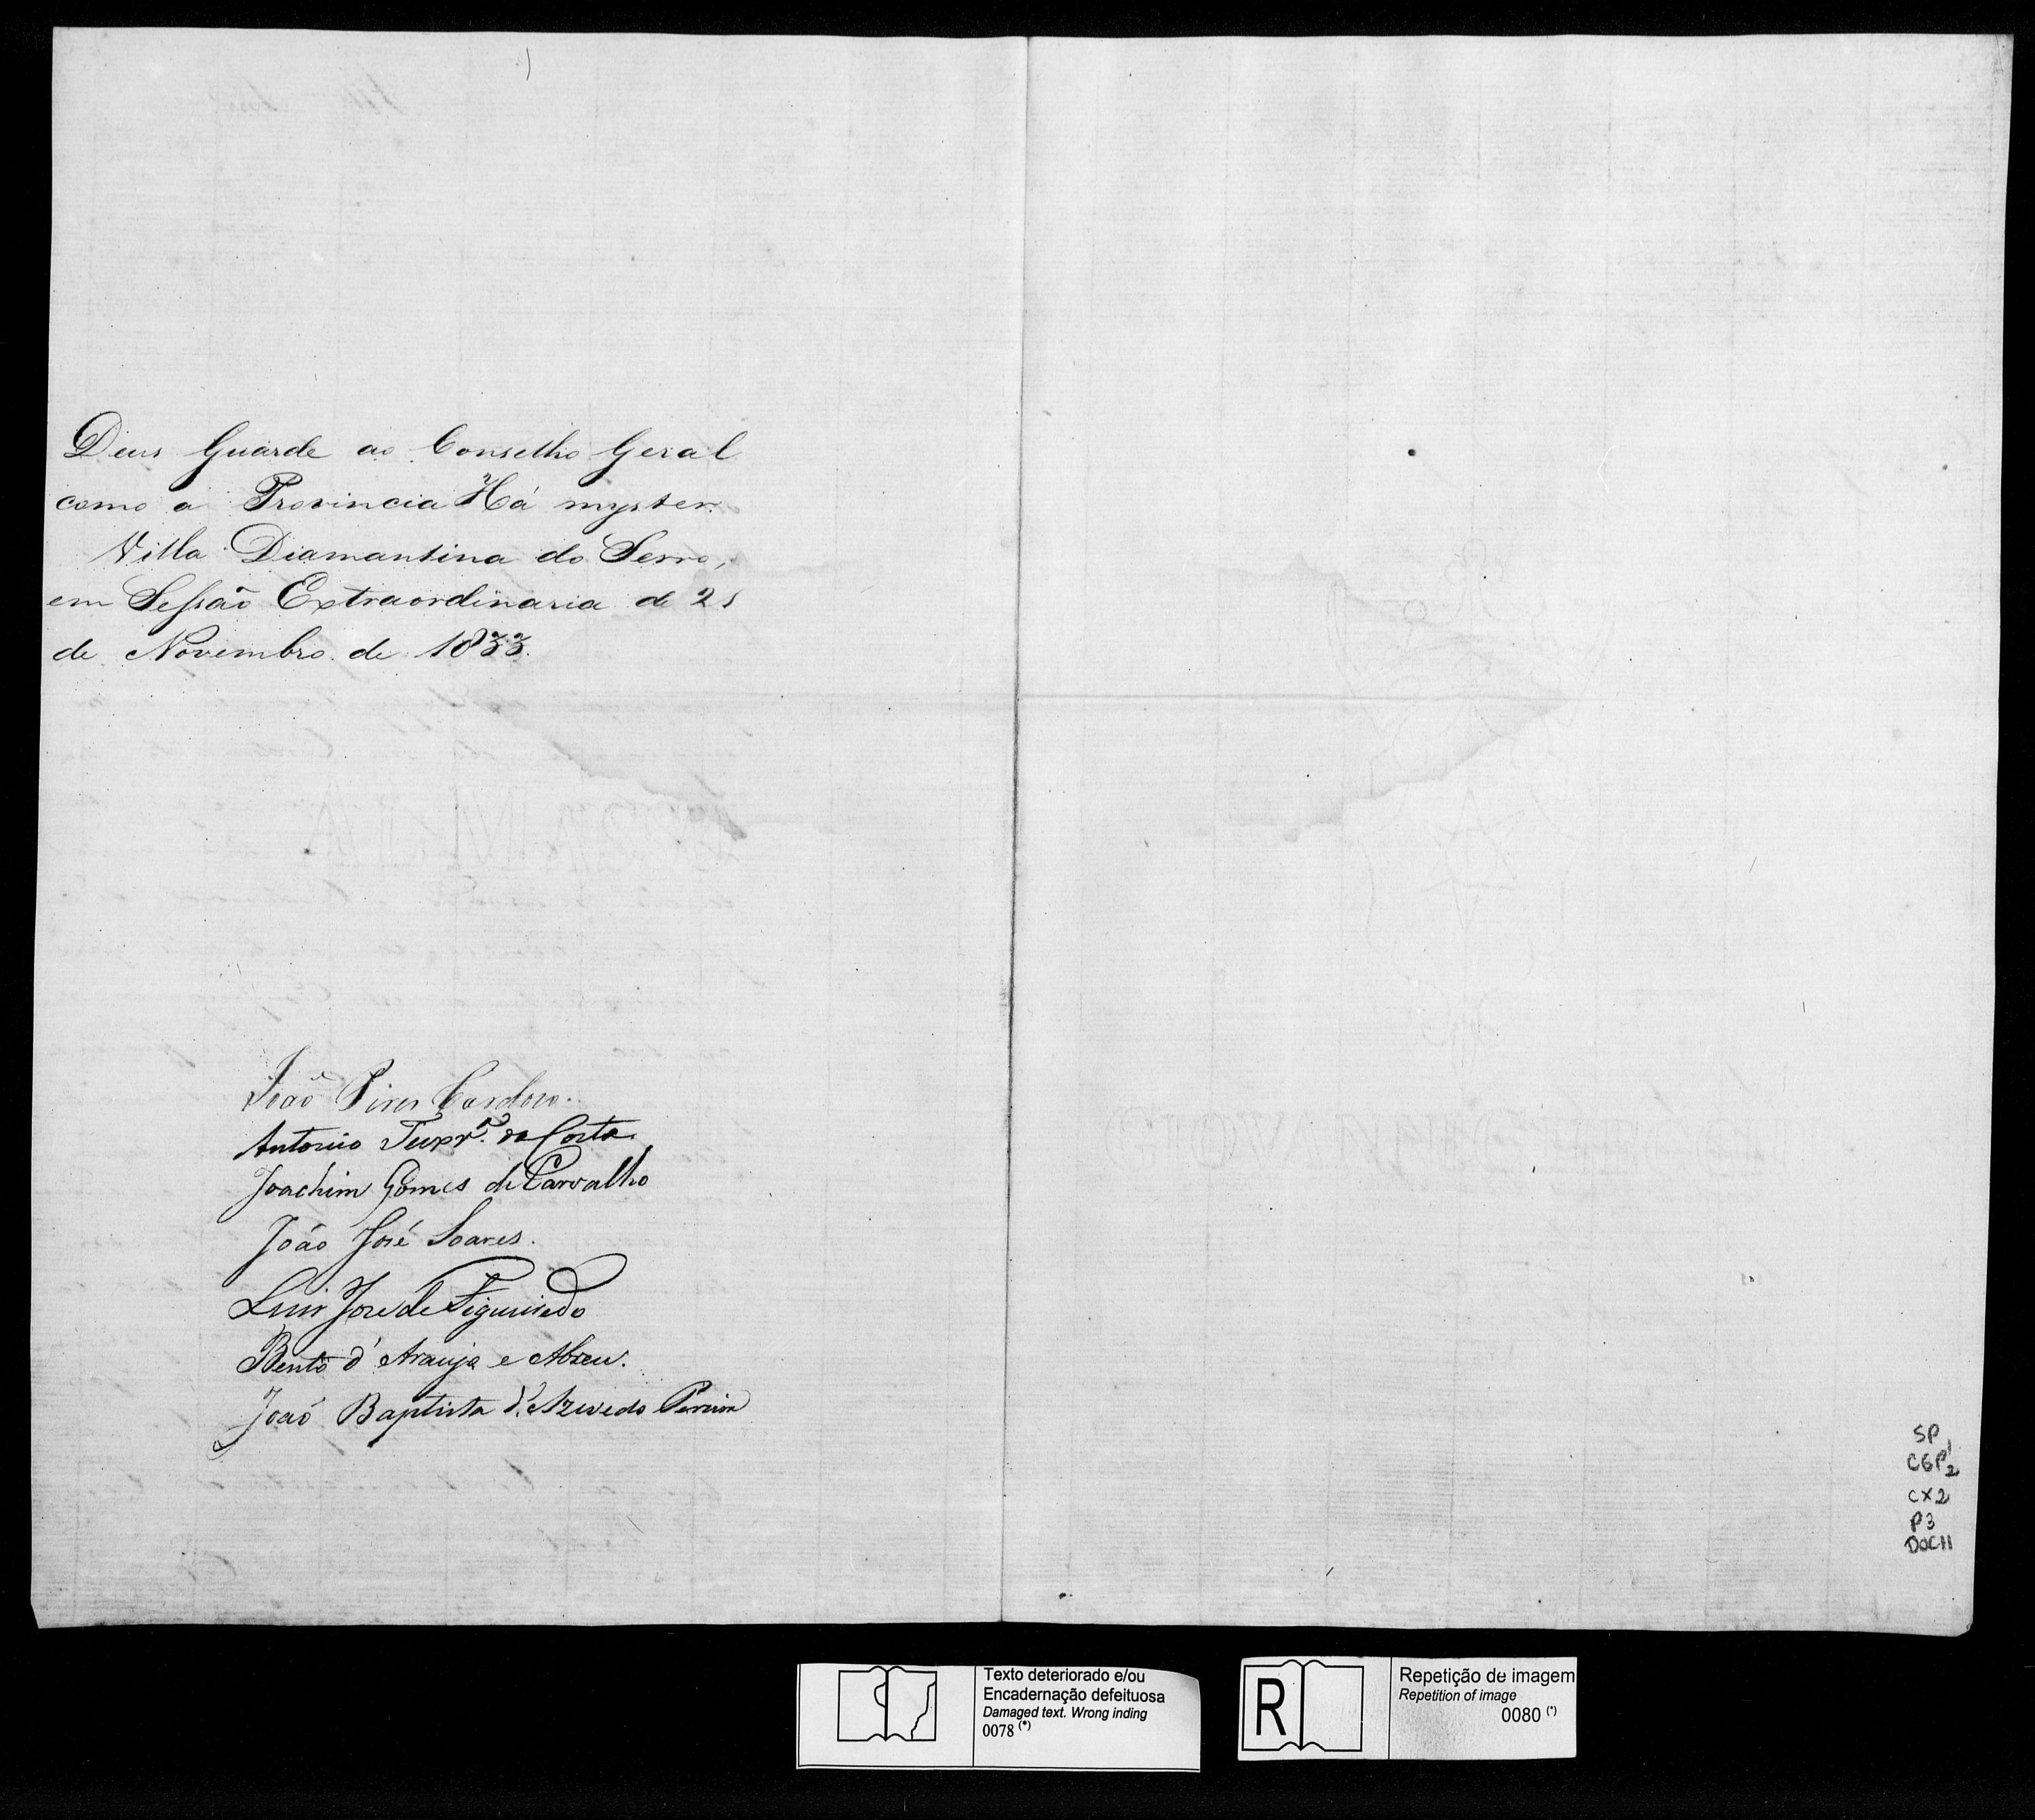 Deus Guarde ao Conselho Geral
como a Provincia Há myster.
Villa Diamantina do Serro,
em Sessão Extraordinaria de 21
de Novembro de 1833.
João Pires Cardoso.
Antonio Teixr.ª da Costa
Joachim Gomes de Carvalho
João José Soares.
Luis Jose de Figueiredo
Bento d'Araujo e Abreu.
João Baptista d'Azevedo Pereira
SP
CGP 1/2
CX2
P3
DOC11
Texto deteriorado e/ou
Encadernação defeituosa
Damaged text. Wrong inding
0078 (*)
R
Repetição de imagem
Repetition of image
0080 (*)